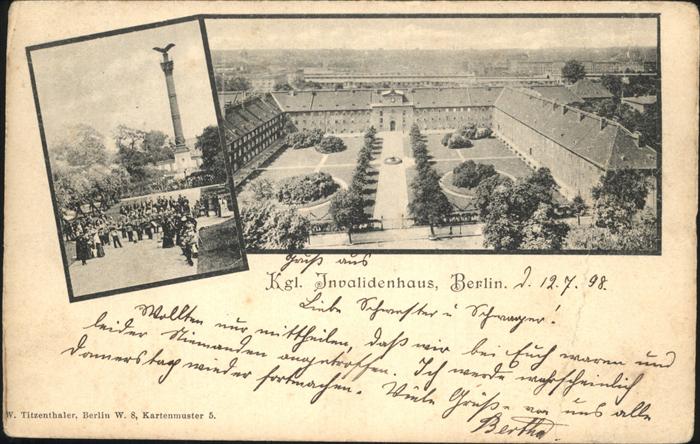 Gruß aus
Kgl. Invalidenhaus, Berlin. d. 12.7.98.
Liebe Schwester u Schwager!
Wollten nur mittheilen, daß wir bei Euch waren und
leider Niemanden angetroffen. Ich werde wahrscheinlich
Donnerstag wieder fortmachen. Viele Grüße von uns alle
Bertha.
W. Titzenthaler, Berlin W. 8, Kartenmuster 5.